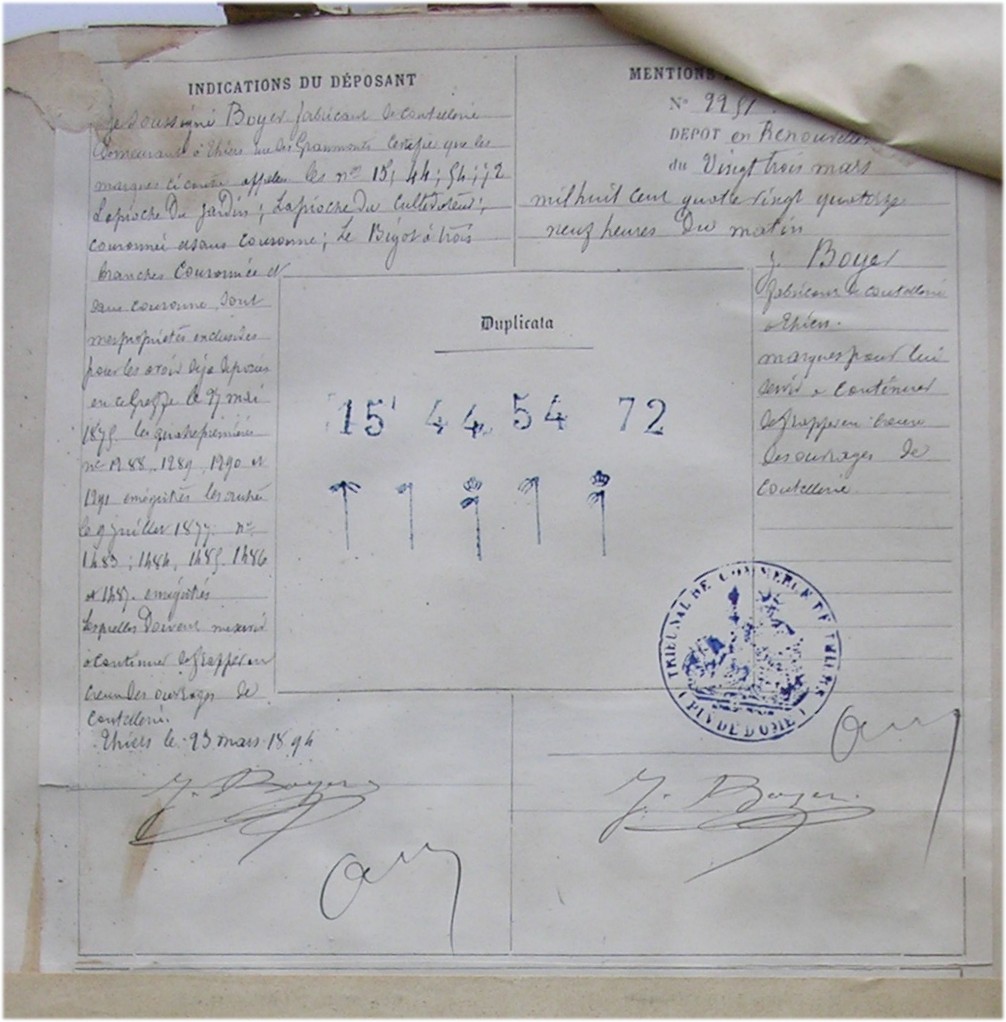 INDICATIONS DU DÉPOSANT
Je soussigné Boyer fabricant de coutellerie
Demeurant à Thiers rue des Grammonts Certifie que les
marques ci contre appelées les nos 15; 44; 54; 72
La pioche du jardin; La pioche du Cultivateur;
couronnée et sans couronne; Le Bigot à trois
branches Couronnée et
sans couronne, sont
mes propriétés exclusives
pour les avoir déjà déposées
en ce Greffe le 27 mai
1875 les quatre premières
no 1288, 1289, 1290 et
1291 enregistrés les autres
le 9 juillet 1877 nos
1483; 1484, 1485, 1486
et 1487 enregistrés
Lesquelles Doivent me servir
à Continuer de frapper en
creux des ouvrages de
Coutellerie.
Thiers le 23 mars 1894
J. Boyer
MENTIONS
No 2251
DÉPÔT en Renouvellem
du Vingt trois mars
mil huit cent quatre vingt quatorze
neuf heures du matin
J. Boyer
fabricant de coutellerie
à Thiers.
marques pour lui
servir à Continuer
de frapper en creux
des ouvrages de
Coutellerie.
Duplicata
15 44 54 72
TRIBUNAL DE COMMERCE DE THIERS
(PUY DE DOME)
J. Boyer